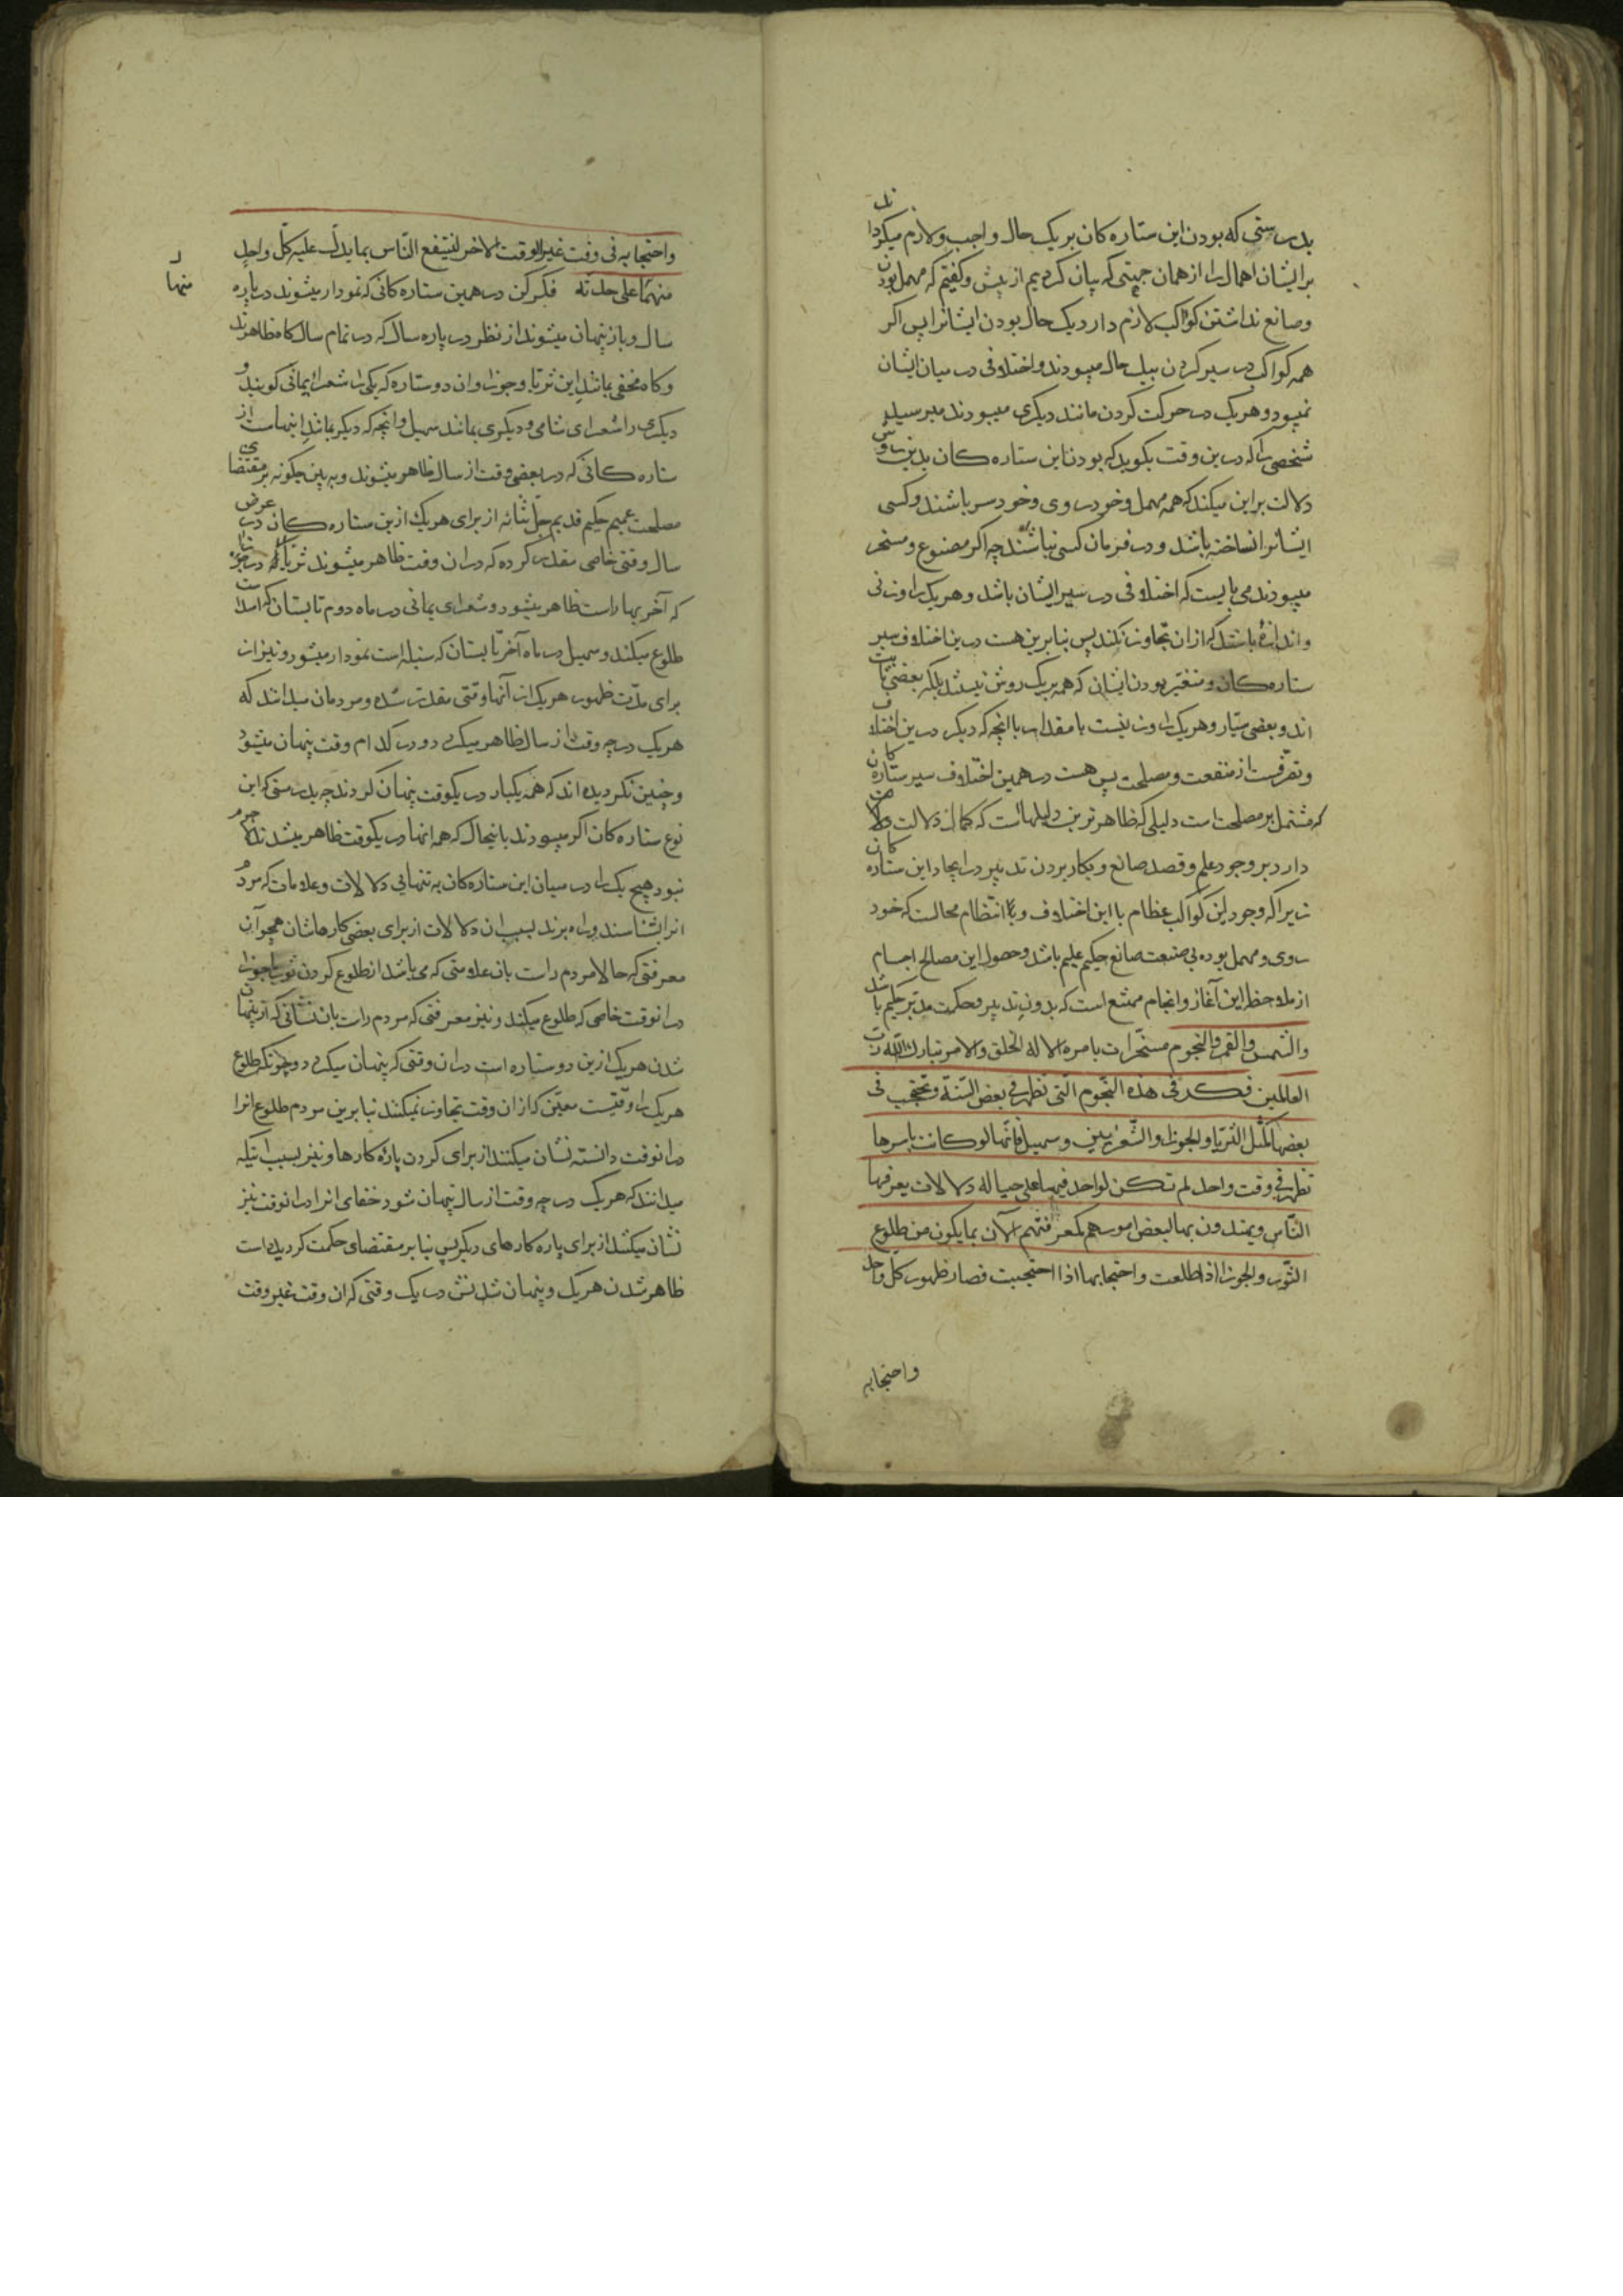 بدرستی که بودن این ستاره کان بریک حال واجب ولازم میکرداند
برایشان اهمال را از همان جهتی که بیان کردیم از پیش وکفتیم که مهمل بودن
وصانع نداشتن کواکب لازم دارد یک حال بودن ایشانرا پس اکر
همه کواکب در سیر کردن بیک حال میبودند واختلافی در میان ایشان
نمیبود وهریک در حرکت کردن مانند دیکری میبودند میرسید
شخصی را که درین وقت بکوید که بودن این ستاره کان بدین روش
دلالت براین میکند که همه مهمل وخود روی وخودسر باشند وکسی
ایشانرا نساخته باشد ودر فرمان کسی نباشند چه اکر مصنوع ومسخر
میبودند می بایست که اختلافی در سیر ایشان باشد وهریک را وزنی
واندازهٔ باشد که ازان تجاوز نکند پس بنابرین هست درین اختلاف سیر
ستاره کان ومتغیر بودن ایشان که همه بریک روش نیستند بلکه بعضی ثابت
اند وبعضی سیار وهریک را وزنیست با مقدار با انچه که دیکر درین اختلاف
وتصرفست از منفعت ومصلحت پس هست در همین اختلاف سیر ستاره کان
که مشتمل بر مصلحت است دلیلی که ظاهر ترین دلیلهاست که کمال دلالت
دارد بر وجود علم وقصد صانع وبکار بردن تدبیر در ایجاد این ستاره کان
زیرا که وجود این کواکب عظام با این اختلاف وبا انتظام محالست که خود
روی ومهمل بوده بی صنعت صانع حکیم علیم باشد وحصول این مصالح اجسام
از ملاحظه این آغاز وانجام ممتنع است که بدون تدبیر وحکمت مدبر حکیم باشد
والشمس والقمر والنجوم مسخرات بامره الا له الخلق والامر تبارک الله رب
العالمین فکر فی هذه النجوم التی تظهر فی بعض السنة وتحتجب فی
بعضها کمثل الثریا والجوزا والشعریین وسهیل فانها لو کانت باسرها
تظهر فی وقت واحد لم تکن لواحد فیها علی حیاله دلالات یعرفها
الناس ویهتدون بها لبعض امورهم کمعرفتهم الآن بما یکون من طلوع
الثور والجوزا اذا طلعت واحتجابها اذا احتجبت فصار ظهور کل واحد
واحتجابه
واحتجابه فی وقت غیر الوقت الاخر لینتفع الناس بما یدل علیه کل واحد
منها
منهما علی حدته فکر کن در همین ستاره کانی که نمودار میشوند در پاره
سال وباز پنهان میشوند از نظر در پاره سال که در تمام سال کاه ظاهرند
وکاه مخفی بمانند این ثریا وجوزا وان دو ستاره که یکی را شعرای یمانی کویند و
دیکری را شعرای شامی ودیکری بمانند سهیل وانچه که دیکر بمانند اینهاست از
ستاره کانی که در بعضی وقت از سال ظاهر میشوند وبه بین چکونه بر مقتضای
مصلحت عمیم حکیم قدیم جل شانه از برای هریک ازین ستاره کان در عرض
سال وقتی خاصی مقدر کرده که دران وقت ظاهر میشوند ثریا که در جوزا
که آخر بهار است ظاهر میشود وشعرای یمانی در ماه دوم تابستان که اسد است
طلوع میکند وسهیل در ماه آخر تابستان که سنبله است نمودار میشود ونیز از
برای مدت ظهور هریک از آنها وقتی مقدر شده ومردمان میدانند که
هریک در چه وقت از سال ظاهر میکردد ودر کدام وقت پنهان میشود
وچنین نکردیده اند که همه یکبار در یکوقت پنهان کردند چه بدرستی که این
نوع ستاره کان اکر میبودند باینحال که همه انها در یکوقت ظاهر میشدند
نبود هیچ یک را در میان این ستاره کان به تنهایی دلالات وعلامات که مردم
انرا بشناسند وراه برند بسبب ان دلالات از برای بعضی کارهاشان همچو آن
معرفتی که حالا مردم راست بان علامتی که می باشد از طلوع کردن ثور یا جوزا
درانوقت خاصی که طلوع میکنند ونیز معرفتی که مردم راست بان نشانی که از پنهان
شدن هریک ازین دو ستاره است دران وقتی که پنهان میکردد وچونکه طلوع
هریک را وقتیست معین که ازان وقت تجاوز نمیکنند بنابرین مردم طلوع انرا
درانوقت دانسته نشان میکنند از برای کردن پارهٔ کارها ونیز بسبب اینکه
میدانند که هریک در چه وقت از سال پنهان شود خفای انرا درانوقت نیز
نشان میکنند از برای پاره کارهای دیکر پس بنابر مقتضای حکمت کردیده است
ظاهر شدن هریک وپنهان شدنش در یک وقتی که ان وقت غیر وقت